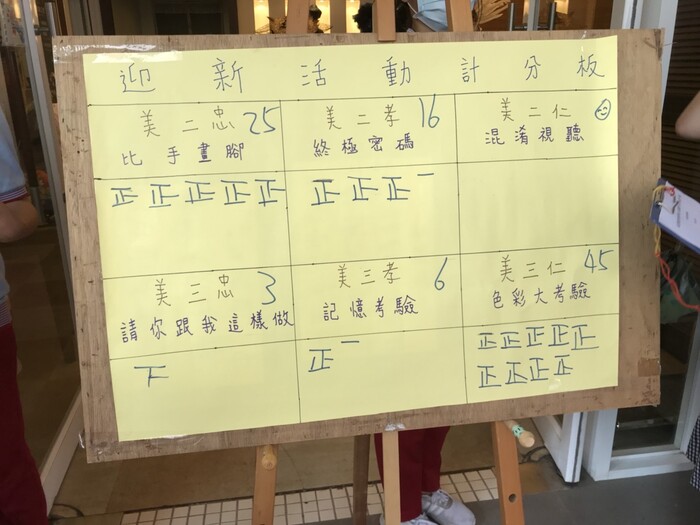 迎新活動計分板
美二忠 25
比手畫腳
正正正正正
美二孝 16
終極密碼
正正正一
美二仁
混淆視聽
美三忠 3
請你跟我這樣做
下
美三孝 6
記憶考驗
正一
美三仁 45
色彩大考驗
正正正正正
正正正正